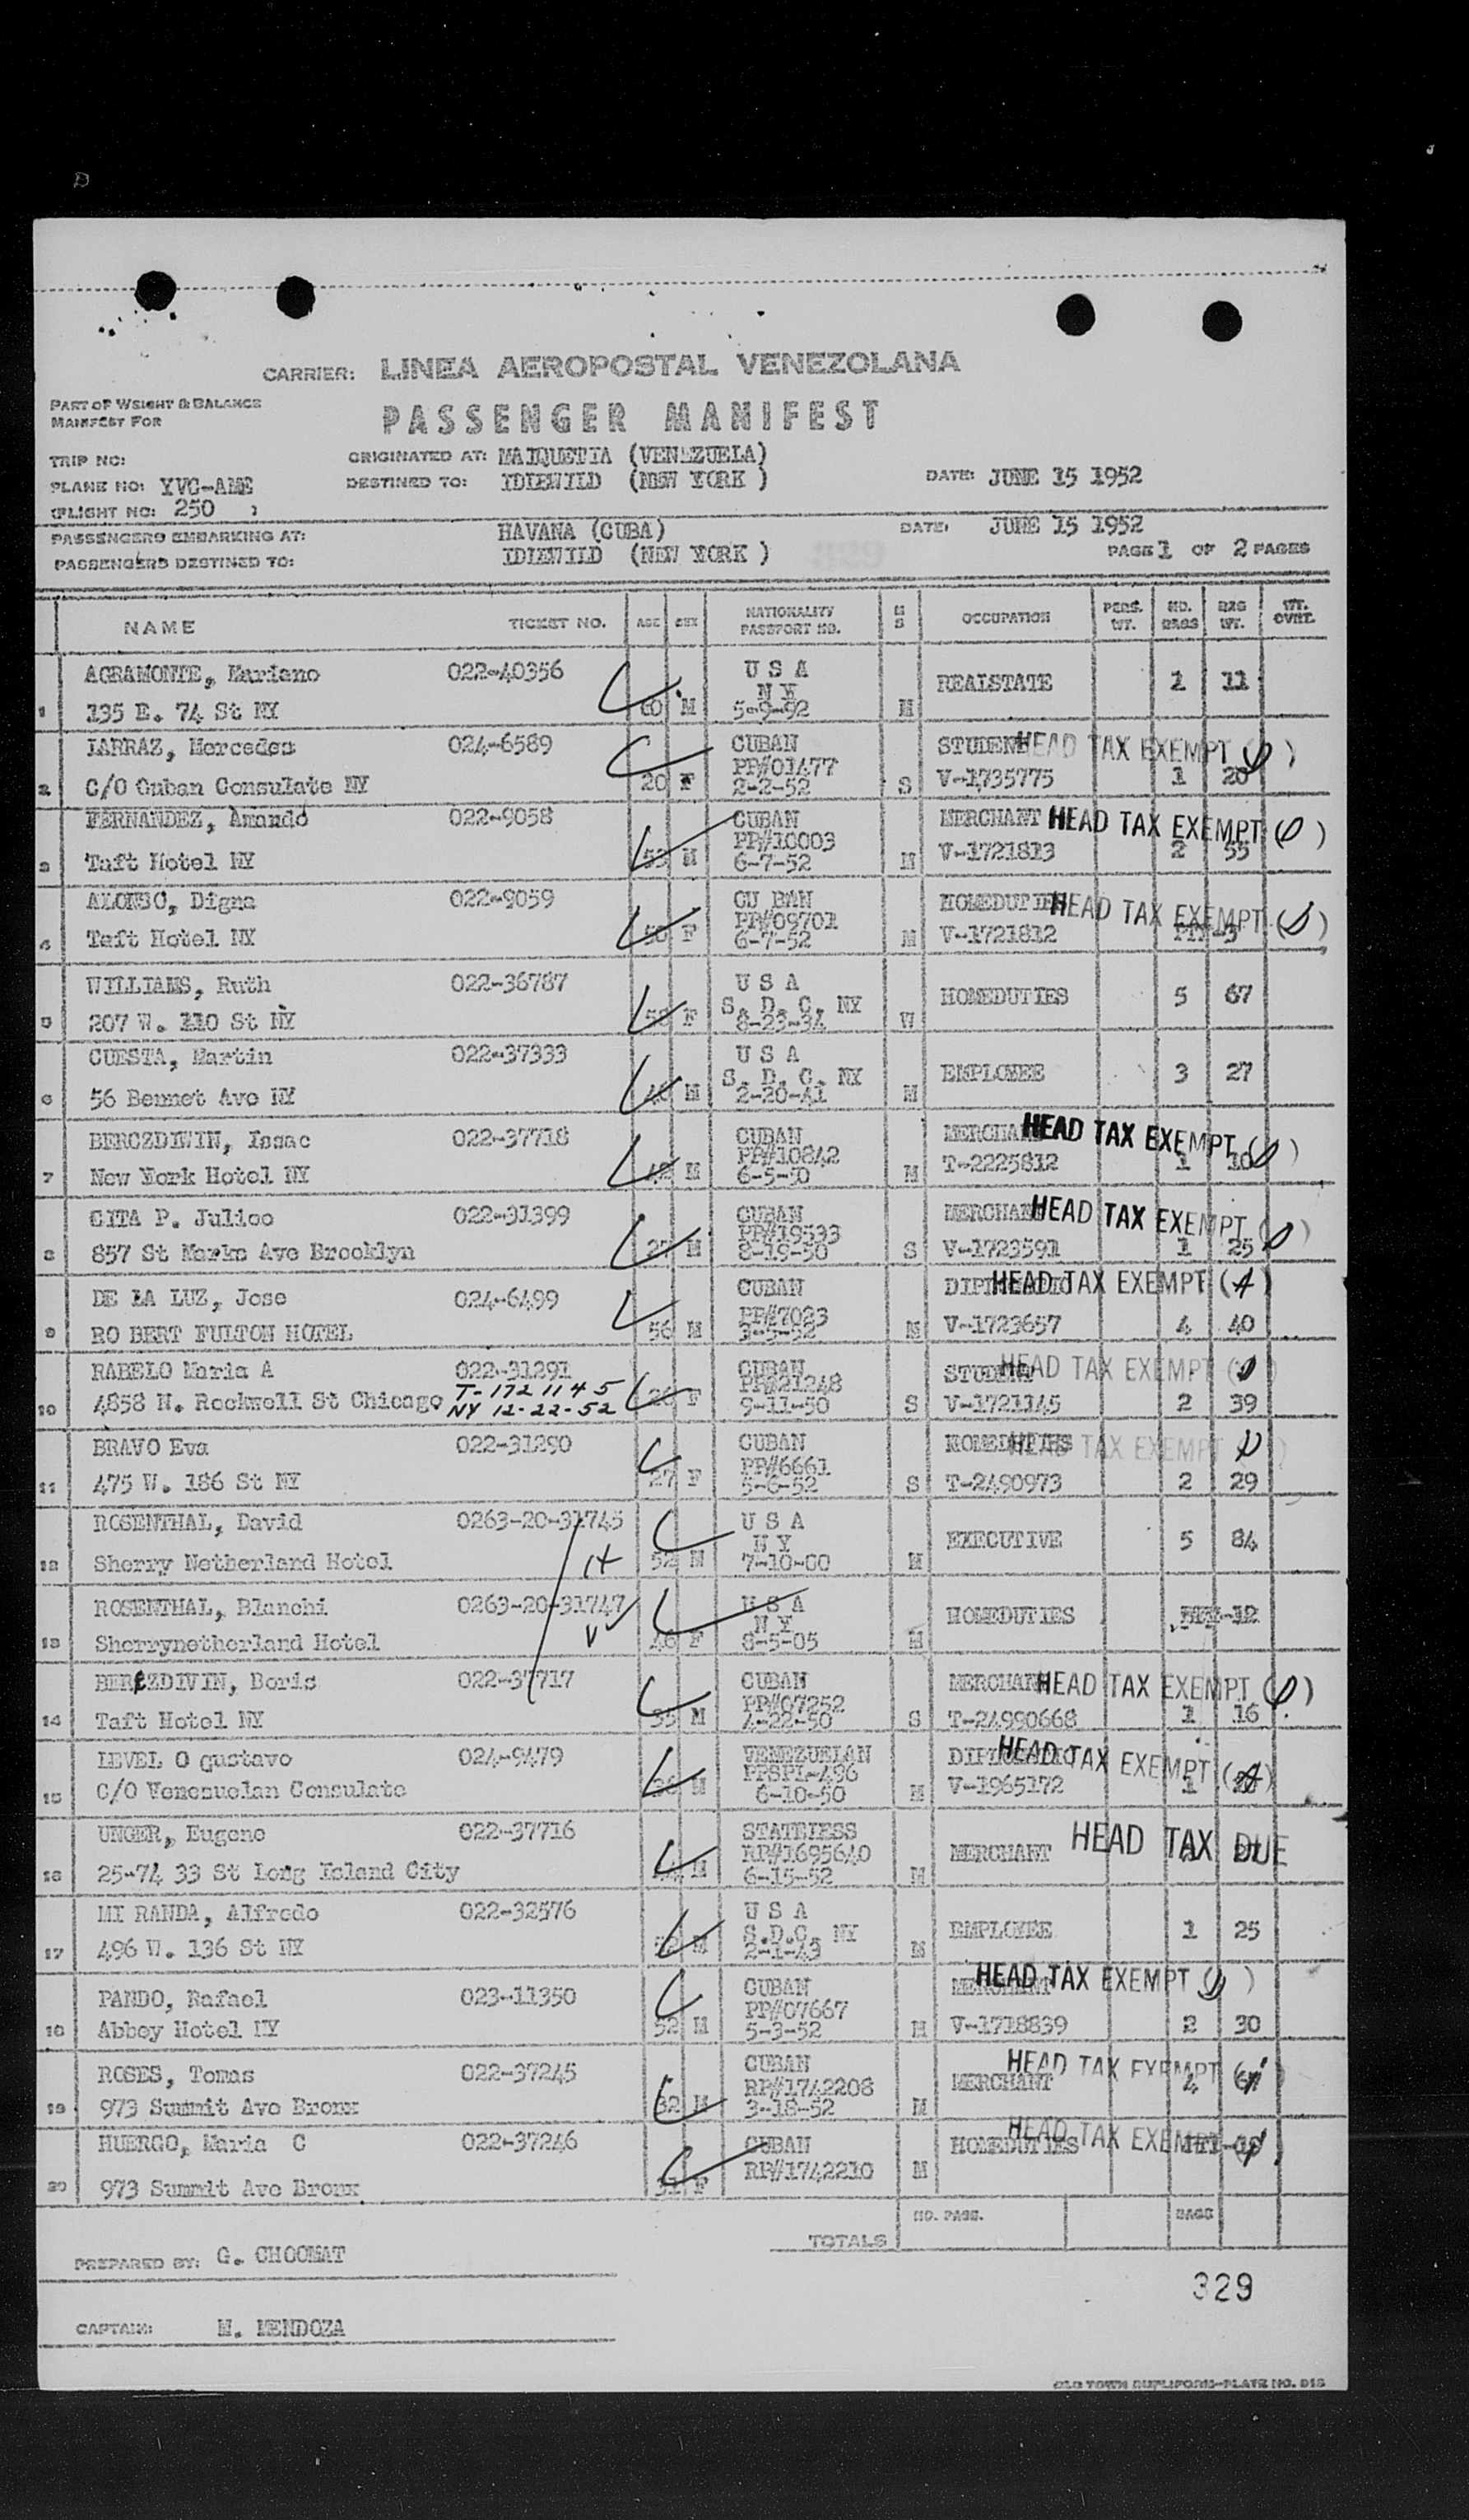 CARRIER: LINEA AEROPOSTAL VENEZOLANA
PART OF WEIGHT & BALANCE
MANIFEST FOR
PASSENGER MANIFEST
TRIP NO:
ORIGINATED AT: MAIQUETIA (VENEZUELA)
PLANE NO: YVC-AME
DESTINED TO: IDIEWILD (NEW YORK )
DATE: JUNE 15 1952
(FLIGHT NO: 250 )
PASSENGERS EMBARKING AT: HAVANA (CUBA)
DATE: JUNE 15 1952
PASSENGERS DESTINED TO: IDIEWILD (NEW YORK )
PAGE 1 OF 2 PAGES
NAME TICKET NO. AGE SEX NATIONALITY PASSPORT NO. M S OCCUPATION PERS. WT. NO. BAGS BAG WT. WT. OVRT.
AGRAMONTE, Mariano 022-40356 U S A
N Y REALSTATE 1 11
1 135 E. 74 St NY 60 M 5-9-92 M
IARRAZ, Mercedes 024-6589 CUBAN STUDENT HEAD TAX EXEMPT ( )
PP#01477
2 C/O Cuban Consulate NY 20 F 2-2-52 S V-1735775 1 20
FERNANDEZ, Amando 022-9058 CUBAN MERCHANT HEAD TAX EXEMPT ( )
PP#10003
3 Taft Hotel NY 53 M 6-7-52 M V-1721813 2 55
ALONSO, Digna 022-9059 CU BAN HOMEDUTIES HEAD TAX EXEMPT ( )
PP#09701
4 Taft Hotel NY 50 F 6-7-52 M V-1721812
WILLIAMS, Ruth 022-36787 U S A
S. D. C. NY HOMEDUTIES 5 67
5 207 W. 110 St NY 58 F 8-23-34 W
CUESTA, Martin 022-37333 U S A
S. D. C. NY EMPLOYEE 3 27
6 56 Bennet Ave NY M 2-20-41 M
BEROZDIVIN, Issac 022-37718 CUBAN MERCHANT HEAD TAX EXEMPT ( )
PP#10842
7 New York Hotel NY 42 M 6-5-50 M T-2225812 1 10
CITA P. Julico 022-31399 CUBAN MERCHANT HEAD TAX EXEMPT ( )
PP#19533
8 857 St Marks Ave Brooklyn 27 M 8-19-50 S V-1723591 1 25
DE LA LUZ, Jose 024-6499 CUBAN DIPLOMATIC HEAD TAX EXEMPT (A)
PP#7023
9 RO BERT FULTON HOTEL 56 M 3-5-52 M V-1723657 4 40
RABELO Maria A 022-31291 CUBAN STUDENT HEAD TAX EXEMPT ( )
T-1721145 PP#21248
10 4858 N. Rockwell St Chicago NY 12-22-52 26 F 9-11-50 S V-1721145 2 39
BRAVO Eva 022-31290 CUBAN HOMEDUTIES HEAD TAX EXEMPT ( )
PP#6661
11 475 W. 186 St NY 27 F 5-6-52 S T-2490973 2 29
ROSENTHAL, David 0263-20-31745 U S A
N Y EXECUTIVE 5 84
12 Sherry Netherland Hotel 52 M 7-10-00 M
ROSENTHAL, Blanchi 0263-20-31747 U S A
N Y HOMEDUTIES
13 Sherrynetherland Hotel 46 F 8-5-05 M
BEREZDIVIN, Boris 022-37717 CUBAN MERCHANT HEAD TAX EXEMPT ( )
PP#07252
14 Taft Hotel NY 35 M 4-22-50 S T-24990668 1 16
LEVEL O gustavo 024-9479 VENEZUELAN DIPLOMATIC HEAD TAX EXEMPT (A)
PPSPL-486
15 C/O Venezuelan Consulate M 6-10-50 M V-1965172 1
UNGER, Eugene 022-37716 STATELESS HEAD TAX DUE
RP#1695640 MERCHANT
16 25-74 33 St Long Island City M 6-15-52 M
MI RANDA, Alfredo 022-32576 U S A
S.D.C. NY EMPLOYEE 1 25
17 496 W. 136 St NY 52 M 2-1-43 M
PANDO, Rafael 023-11350 CUBAN MERCHANT HEAD TAX EXEMPT ( )
PP#07667
18 Abbey Hotel NY 52 M 5-3-52 M V-1718839 2 30
ROSES, Tomas 022-37245 CUBAN HEAD TAX EXEMPT ( )
RP#1742208 MERCHANT 4
19 973 Summit Ave Bronx 32 M 3-18-52 M
HUERGO, Maria C 022-37246 CUBAN HOMEDUTIES HEAD TAX EXEMPT
RP#1742210 M
20 973 Summit Ave Bronx 31 F
NO. PASS. BAGS
TOTALS
PREPARED BY: G. CHOOMAT
329
CAPTAIN: M. MENDOZA
OLD TOWN DUPLIFORM-PLATE NO. D18